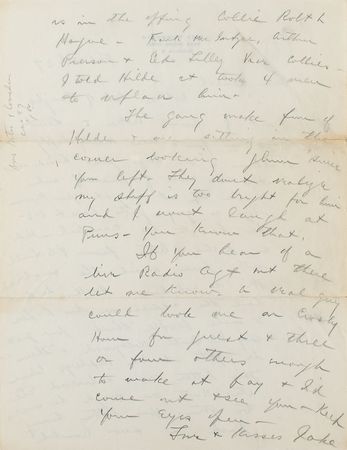 is in the offing Collie Robt L
Hague - Frank McIntyre, Arthur
Pierson & Eds Lilly Han Collins -
I told Hilde it took 4 men
to replace him -
The gang make fun of
Hilde & me sitting in the
corner looking glum since
you left. They don't realize
my stuff is too bright for him
and I won't laugh at
Puns - You know that.
If you hear of a
live Radio Agt out there
let me know, a real guy
could book me on Crosby
Hour for guest & three
or four others enough
to make it pay & I'd
come out & see you - Keep
your eyes open -
Love & Kisses Jake